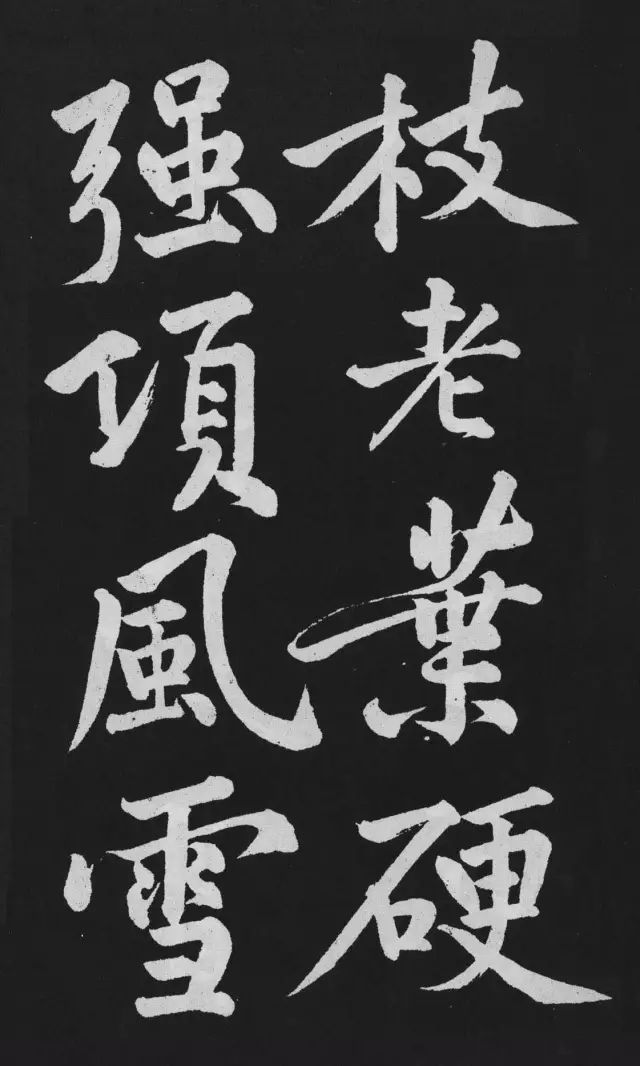 枝老葉硬
强項風雪